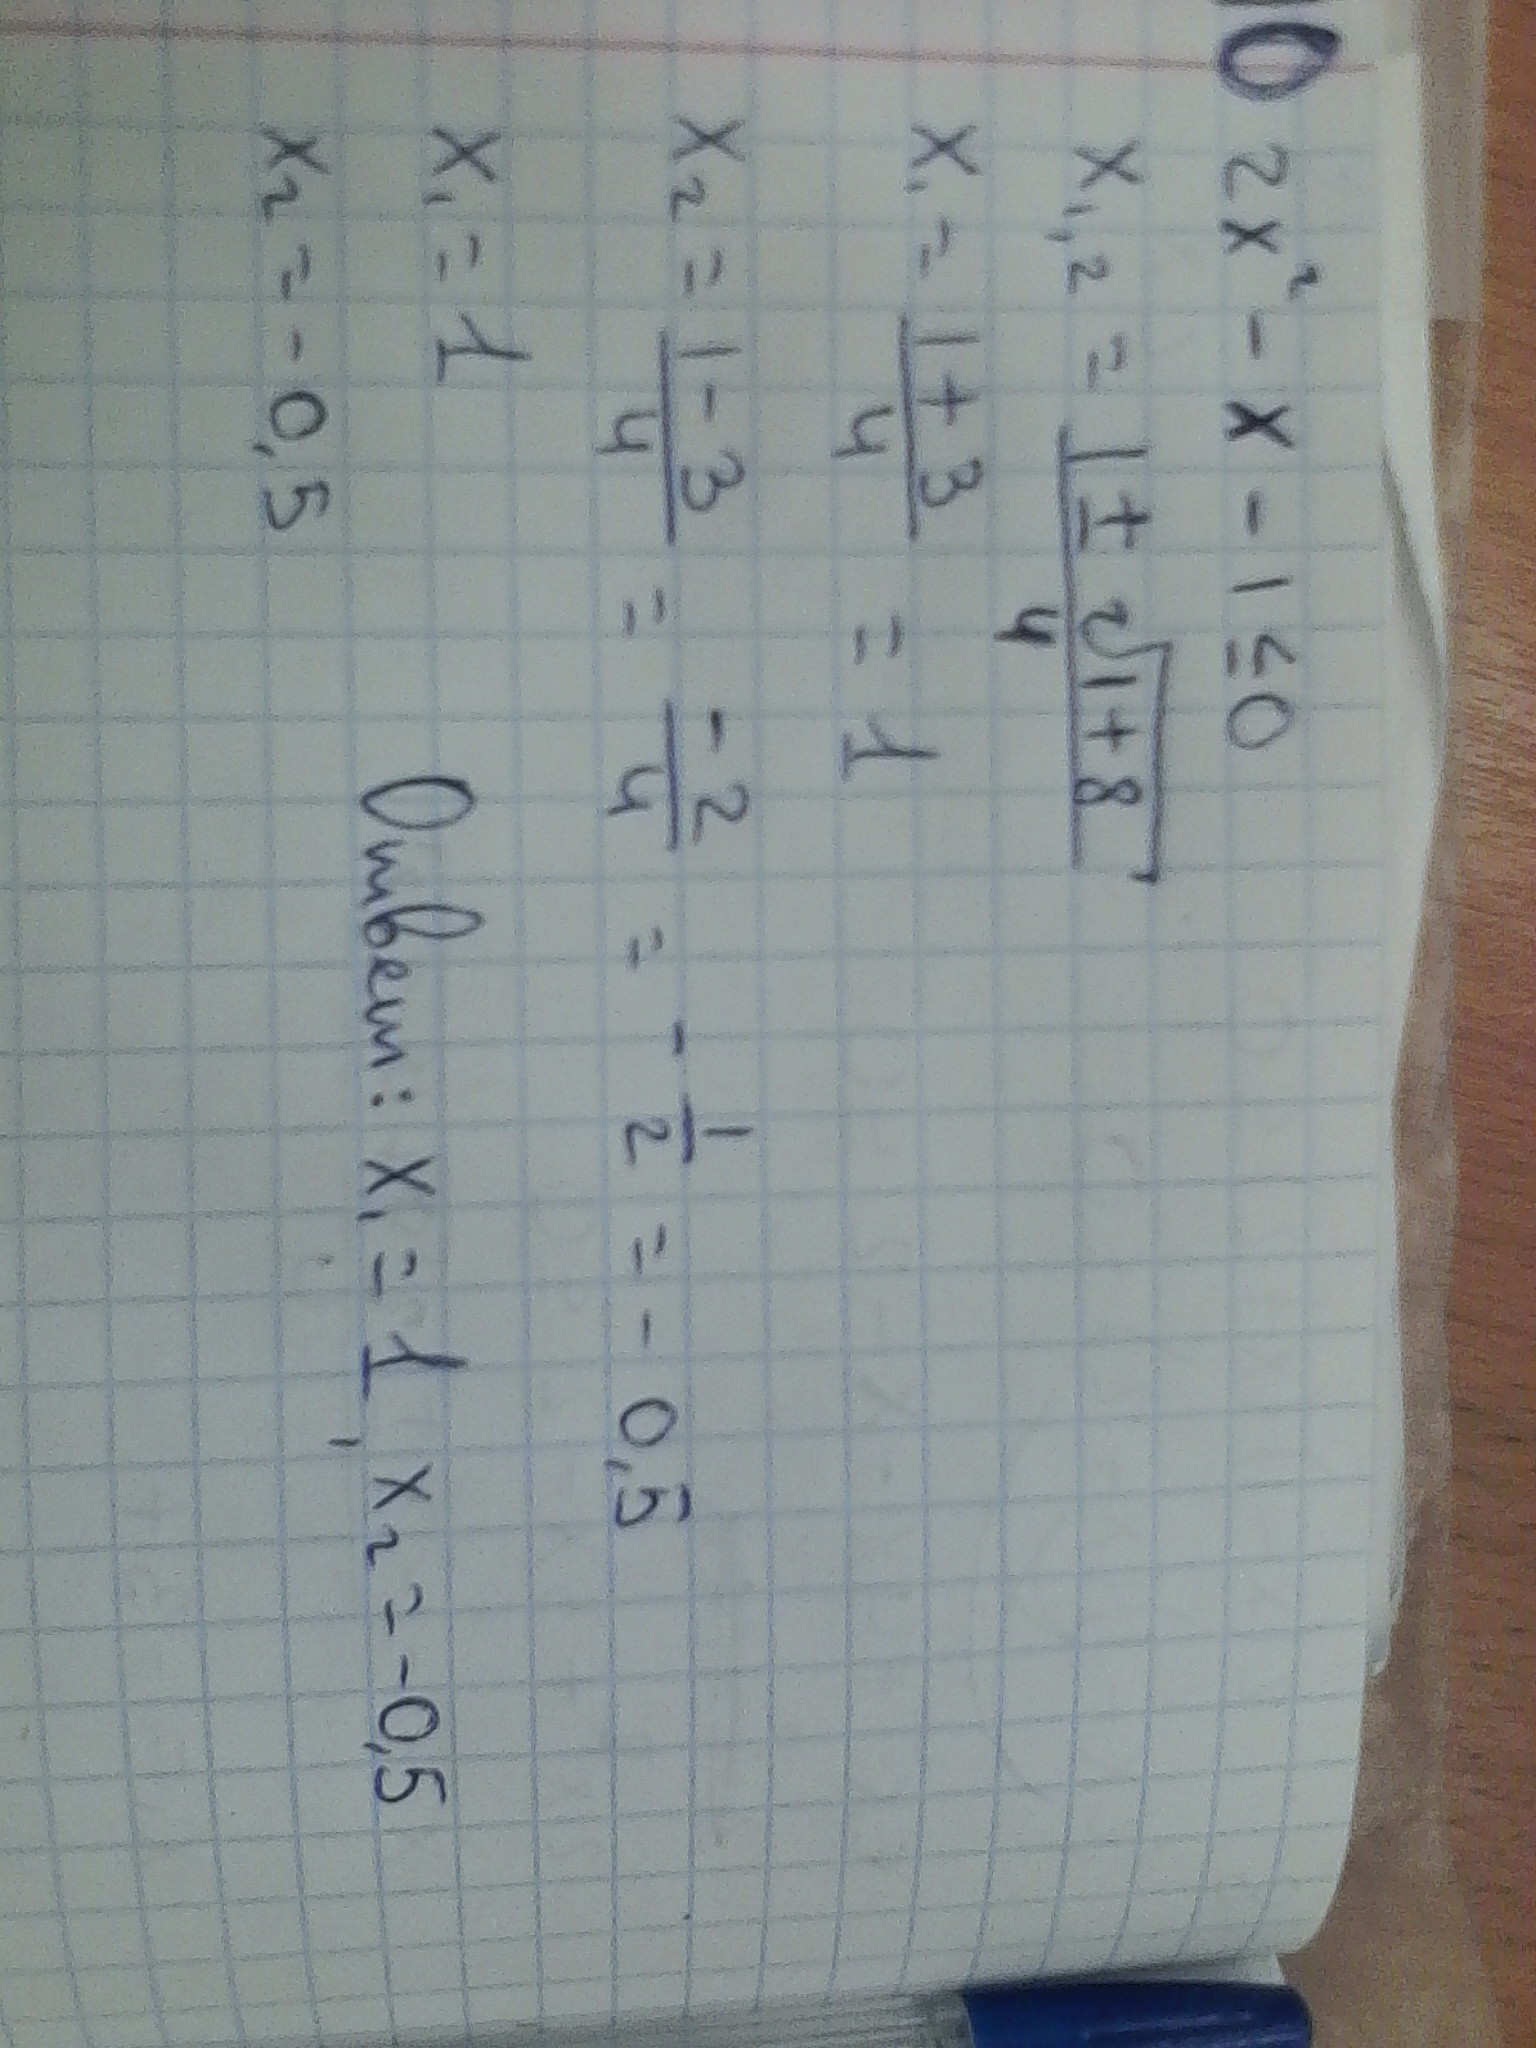 10 2x² - x - 1 ≤ 0
x₁,₂ = (1 ± √(1+8))/4
x₁ = (1+3)/4 = 1
x₂ = (1-3)/4 = -2/4 = -1/2 = -0,5
x₁ = 1
x₂ = -0,5
Ответ: x₁ = 1, x₂ = -0,5